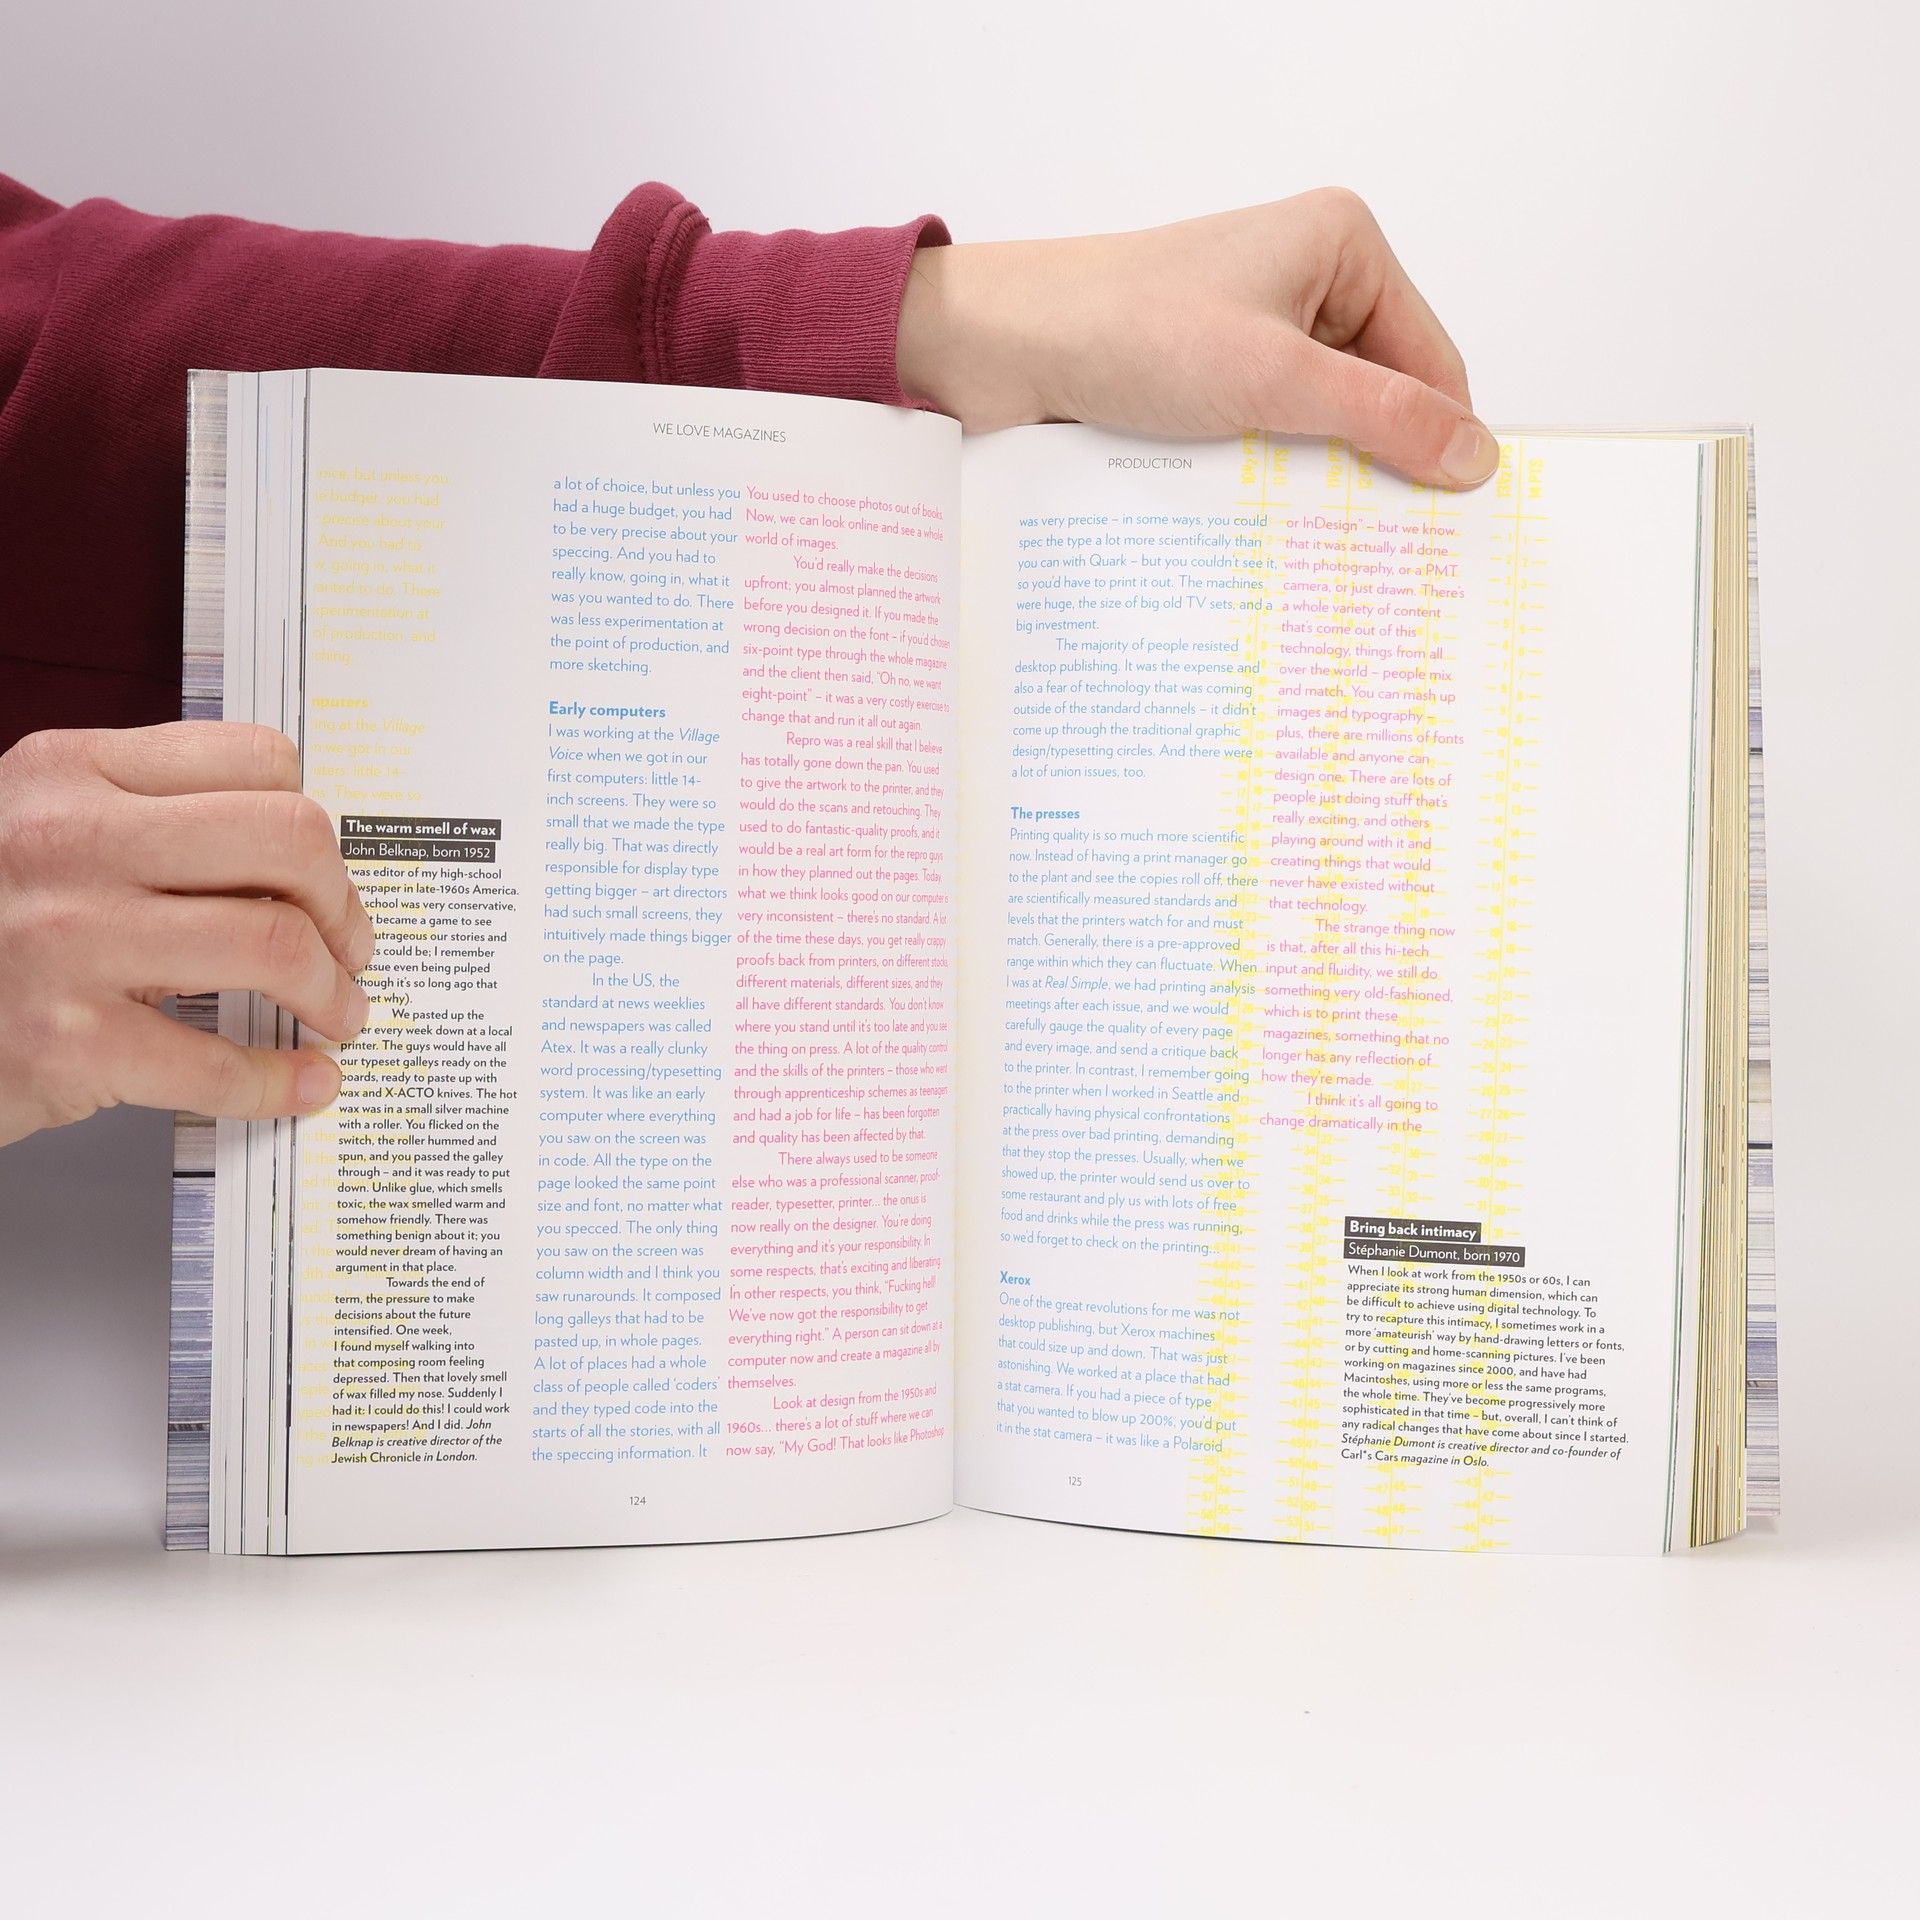 WE LOVE MAGAZINES
The warm smell of wax
John Belknap, born 1952
was editor of my high-school
in late-1960s America.
school was very conservative,
became a game to see
our stories and
could be; I remember
issue even being pulped
it's so long ago that
why).
We pasted up the
every week down at a local
printer. The guys would have all
our typeset galleys ready on the
boards, ready to paste up with
wax and X-ACTO knives. The hot
wax was in a small silver machine
with a roller. You flicked on the
switch, the roller hummed and
spun, and you passed the galley
through – and it was ready to put
down. Unlike glue, which smells
toxic, the wax smelled warm and
somehow friendly. There was
something benign about it; you
would never dream of having an
argument in that place.
Towards the end of
term, the pressure to make
decisions about the future
intensified. One week,
I found myself walking into
that composing room feeling
depressed. Then that lovely smell
of wax filled my nose. Suddenly I
had it: I could do this! I could work
in newspapers! And I did. John
Belknap is creative director of the
Jewish Chronicle in London.
a lot of choice, but unless you
had a huge budget, you had
to be very precise about your
speccing. And you had to
really know, going in, what it
was you wanted to do. There
was less experimentation at
the point of production, and
more sketching.
Early computers
I was working at the Village
Voice when we got in our
first computers: little 14-
inch screens. They were so
small that we made the type
really big. That was directly
responsible for display type
getting bigger – art directors
had such small screens, they
intuitively made things bigger
on the page.
In the US, the
standard at news weeklies
and newspapers was called
Atex. It was a really clunky
word processing/typesetting
system. It was like an early
computer where everything
you saw on the screen was
in code. All the type on the
page looked the same point
size and font, no matter what
you specced. The only thing
you saw on the screen was
column width and I think you
saw runarounds. It composed
long galleys that had to be
pasted up, in whole pages.
A lot of places had a whole
class of people called ‘coders’
and they typed code into the
starts of all the stories, with all
the speccing information. It
You used to choose photos out of books.
Now, we can look online and see a whole
world of images.
You'd really make the decisions
upfront; you almost planned the artwork
before you designed it. If you made the
wrong decision on the font – if you'd chosen
six-point type through the whole magazine
and the client then said, “Oh no, we want
eight-point” – it was a very costly exercise to
change that and run it all out again.
Repro was a real skill that I believe
has totally gone down the pan. You used
to give the artwork to the printer, and they
would do the scans and retouching. They
used to do fantastic-quality proofs, and it
would be a real art form for the repro guys
in how they planned out the pages. Today,
what we think looks good on our computer is
very inconsistent – there's no standard. A lot
of the time these days, you get really crappy
proofs back from printers, on different stocks,
different materials, different sizes, and they
all have different standards. You don't know
where you stand until it's too late and you see
the thing on press. A lot of the quality control
and the skills of the printers – those who went
through apprenticeship schemes as teenagers
and had a job for life – has been forgotten
and quality has been affected by that.
There always used to be someone
else who was a professional scanner, proof-
reader, typesetter, printer... the onus is
now really on the designer. You're doing
everything and it's your responsibility. In
some respects, that's exciting and liberating
In other respects, you think, “Fucking hell!
We've now got the responsibility to get
everything right.” A person can sit down at a
computer now and create a magazine all by
themselves.
Look at design from the 1950s and
1960s... there's a lot of stuff where we can
now say, “My God! That looks like Photoshop
124
PRODUCTION
was very precise – in some ways, you could
spec the type a lot more scientifically than
you can with Quark – but you couldn't see it,
so you'd have to print it out. The machines
were huge, the size of big old TV sets, and a
big investment.
The majority of people resisted
desktop publishing. It was the expense and
also a fear of technology that was coming
outside of the standard channels – it didn't
come up through the traditional graphic
design/typesetting circles. And there were
a lot of union issues, too.
The presses
Printing quality is so much more scientific
now. Instead of having a print manager go
to the plant and see the copies roll off, there
are scientifically measured standards and
levels that the printers watch for and must
match. Generally, there is a pre-approved
range within which they can fluctuate. When
I was at Real Simple, we had printing analysis
meetings after each issue, and we would
carefully gauge the quality of every page
and every image, and send a critique back
to the printer. In contrast, I remember going
to the printer when I worked in Seattle and
practically having physical confrontations
at the press over bad printing, demanding
that they stop the presses. Usually, when we
showed up, the printer would send us over to
some restaurant and ply us with lots of free
food and drinks while the press was running,
so we'd forget to check on the printing...
Xerox
One of the great revolutions for me was not
desktop publishing, but Xerox machines
that could size up and down. That was just
astonishing. We worked at a place that had
a stat camera. If you had a piece of type
that you wanted to blow up 200%, you'd put
it in the stat camera – it was like a Polaroid
or InDesign” – but we know
that it was actually all done
with photography, or a PMT
camera, or just drawn. There's
a whole variety of content
that's come out of this
technology, things from all
over the world – people mix
and match. You can mash up
images and typography –
plus, there are millions of fonts
available and anyone can
design one. There are lots of
people just doing stuff that's
really exciting, and others
playing around with it and
creating things that would
never have existed without
that technology.
The strange thing now
is that, after all this hi-tech
input and fluidity, we still do
something very old-fashioned,
which is to print these
magazines, something that no
longer has any reflection of
how they're made.
I think it's all going to
change dramatically in the
Bring back intimacy
Stéphanie Dumont, born 1970
When I look at work from the 1950s or 60s, I can
appreciate its strong human dimension, which can
be difficult to achieve using digital technology. To
try to recapture this intimacy, I sometimes work in a
more ‘amateurish’ way by hand-drawing letters or fonts,
or by cutting and home-scanning pictures. I've been
working on magazines since 2000, and have had
Macintoshes, using more or less the same programs,
the whole time. They've become progressively more
sophisticated in that time – but, overall, I can't think of
any radical changes that have come about since I started.
Stéphanie Dumont is creative director and co-founder of
Carl*s Cars magazine in Oslo.
125